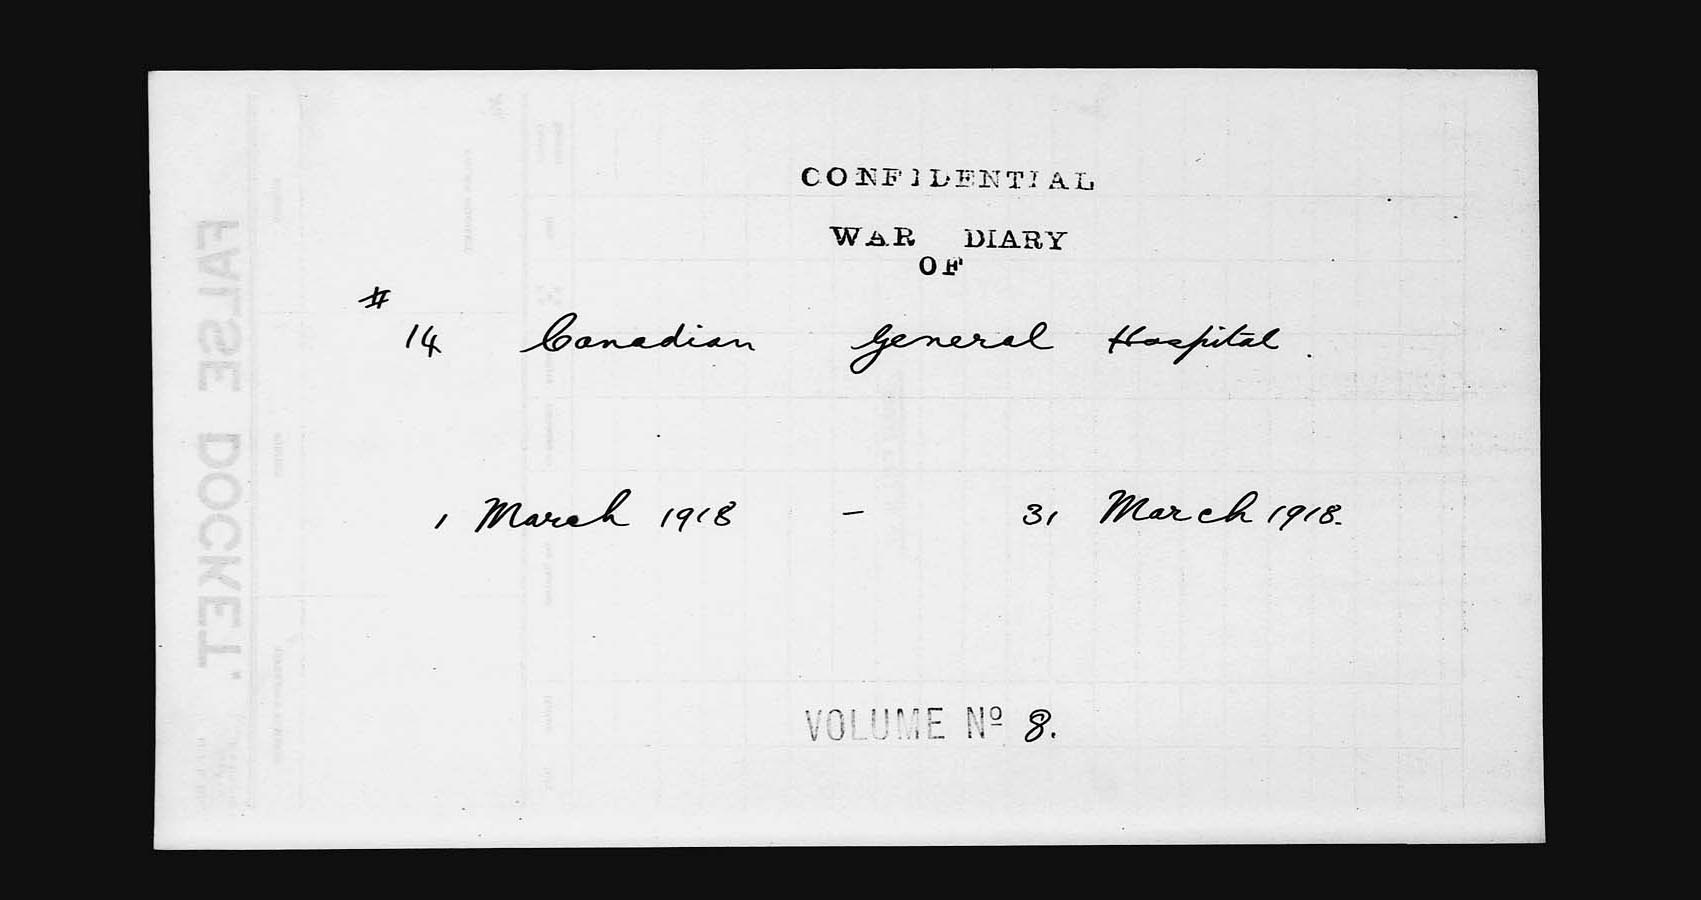 CONFIDENTIAL
WAR DIARY
OF
#
14 Canadian General Hospital.
1 March 1918 - 31 March 1918.
VOLUME Nº 8.
FALSE DOCKET"